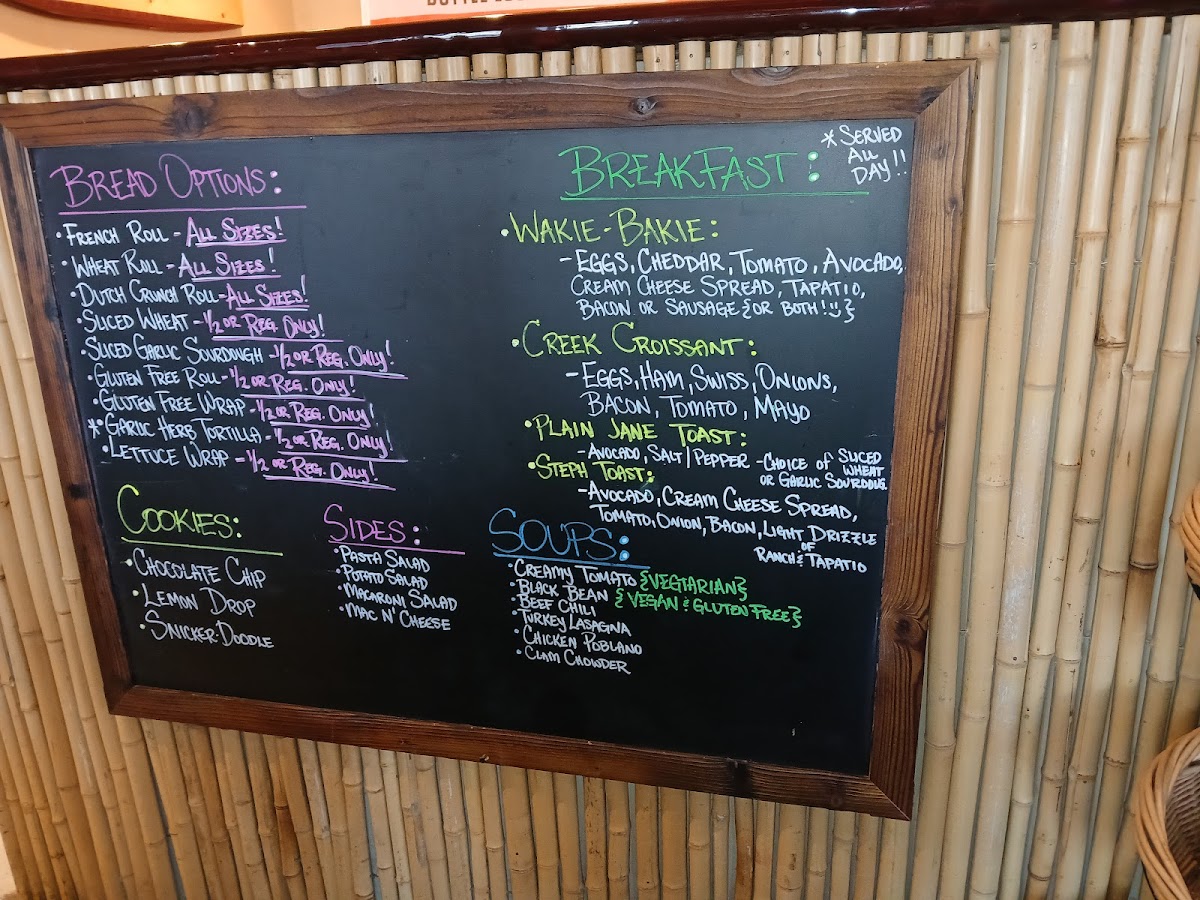 BREAD OPTIONS:
• FRENCH ROLL - ALL SIZES!
• WHEAT ROLL - ALL SIZES!
• DUTCH CRUNCH ROLL - ALL SIZES!
• SLICED WHEAT - 1/2 OR REG. ONLY!
• SLICED GARLIC SOURDOUGH - 1/2 OR REG. ONLY!
• GLUTEN FREE ROLL - 1/2 OR REG. ONLY!
• GLUTEN FREE WRAP - 1/2 OR REG. ONLY!
*• GARLIC HERB TORTILLA - 1/2 OR REG. ONLY!
• LETTUCE WRAP - 1/2 OR REG. ONLY!
COOKIES:
• CHOCOLATE CHIP
• LEMON DROP
• SNICKER-DOODLE
SIDES:
• PASTA SALAD
• POTATO SALAD
• MACARONI SALAD
• MAC N' CHEESE
BREAKFAST:
* SERVED
ALL
DAY!!
• WAKIE-BAKIE:
- EGGS, CHEDDAR, TOMATO, AVOCADO,
CREAM CHEESE SPREAD, TAPATIO,
BACON OR SAUSAGE {OR BOTH! :)}
• CREEK CROISSANT:
- EGGS, HAM, SWISS, ONIONS,
BACON, TOMATO, MAYO
• PLAIN JANE TOAST:
- AVOCADO, SALT/PEPPER - CHOICE OF SLICED
WHEAT
OR GARLIC SOURDOUG.
• STEPH TOAST:
- AVOCADO, CREAM CHEESE SPREAD,
TOMATO, ONION, BACON, LIGHT DRIZZLE
OF
RANCH & TAPATIO
SOUPS:
• CREAMY TOMATO {VEGTARIAN}
• BLACK BEAN {VEGAN & GLUTEN FREE}
• BEEF CHILI
• TURKEY LASAGNA
• CHICKEN POBLANO
• CLAM CHOWDER